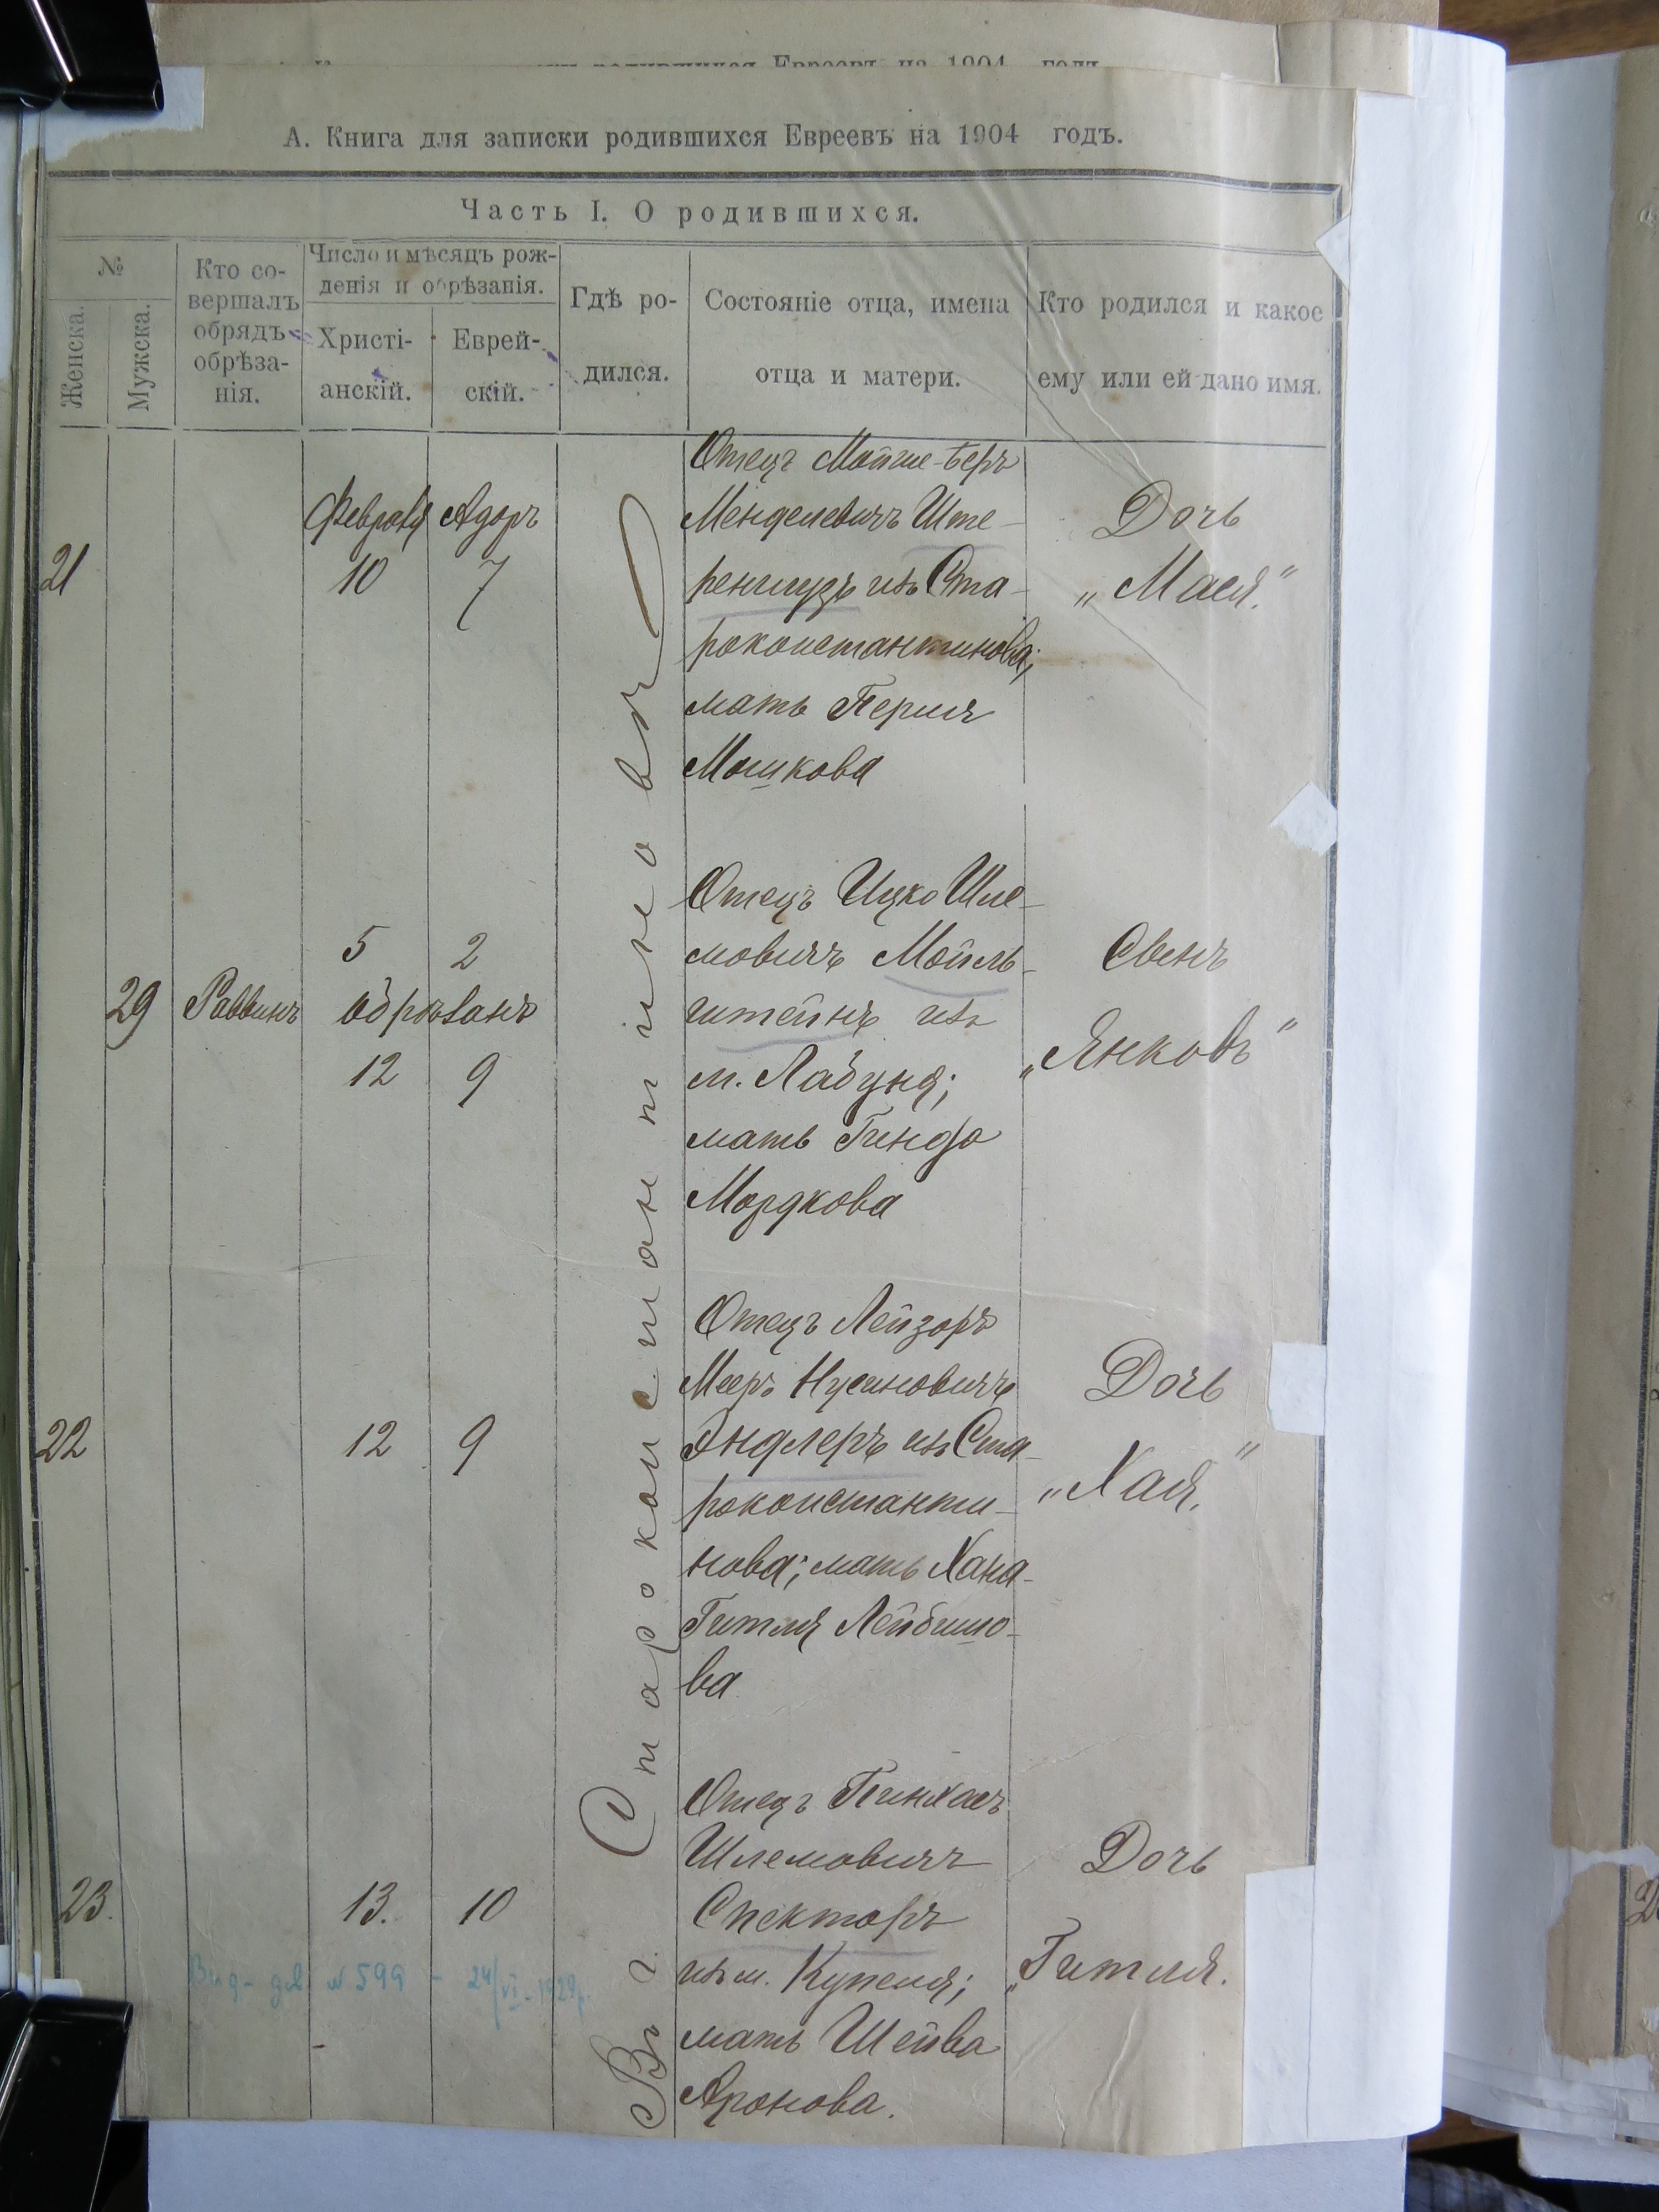 родившихся Евреевъ на 1904 годъ
А. Книга для записки родившихся Евреевъ на 1904 годъ.
Часть I. О родившихся.
№
Женска.
Мужска.
Кто со-
вершалъ
обрядъ
обрѣза-
нія.
Число и мѣсяцъ рож-
денія и обрѣзанія.
Христі-
анскій.
Еврей-
скій.
Гдѣ ро-
дился.
Состояніе отца, имена
отца и матери.
Кто родился и какое
ему или ей дано имя.
Въ г. Староконстантиновѣ
21
Февраля Адоръ
10 7
Отецъ Мойше-Беръ
Менделевичъ Ште-
ренгшузъ изъ Ста-
роконстантинова;
мать Перля
Мошкова
Дочь
„Мася."
29 Раввинъ
5 2
обрѣзанъ
12 9
Отецъ Ицко Шле-
мовичъ Мойль-
штейнъ изъ
м. Лабуня;
мать Гинда
Мордкова
Сынъ
„Янковъ"
22
12 9
Отецъ Лейзоръ
Мееръ Нусиновичъ
Эндлеръ изъ Ста-
роконстанти-
нова; мать Хана-
Гитля Лейбишо-
ва
Дочь
„Хая."
23.
13. 10
Отецъ Пинхасъ
Шлемовичъ
Спекторъ
изъ м. Купеля;
мать Шейва
Аронова.
Дочь
„Гитля.
№ 599 - 24/VI